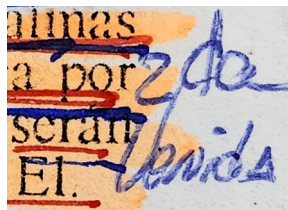 almas
a por
serán
El.
2da
Venida